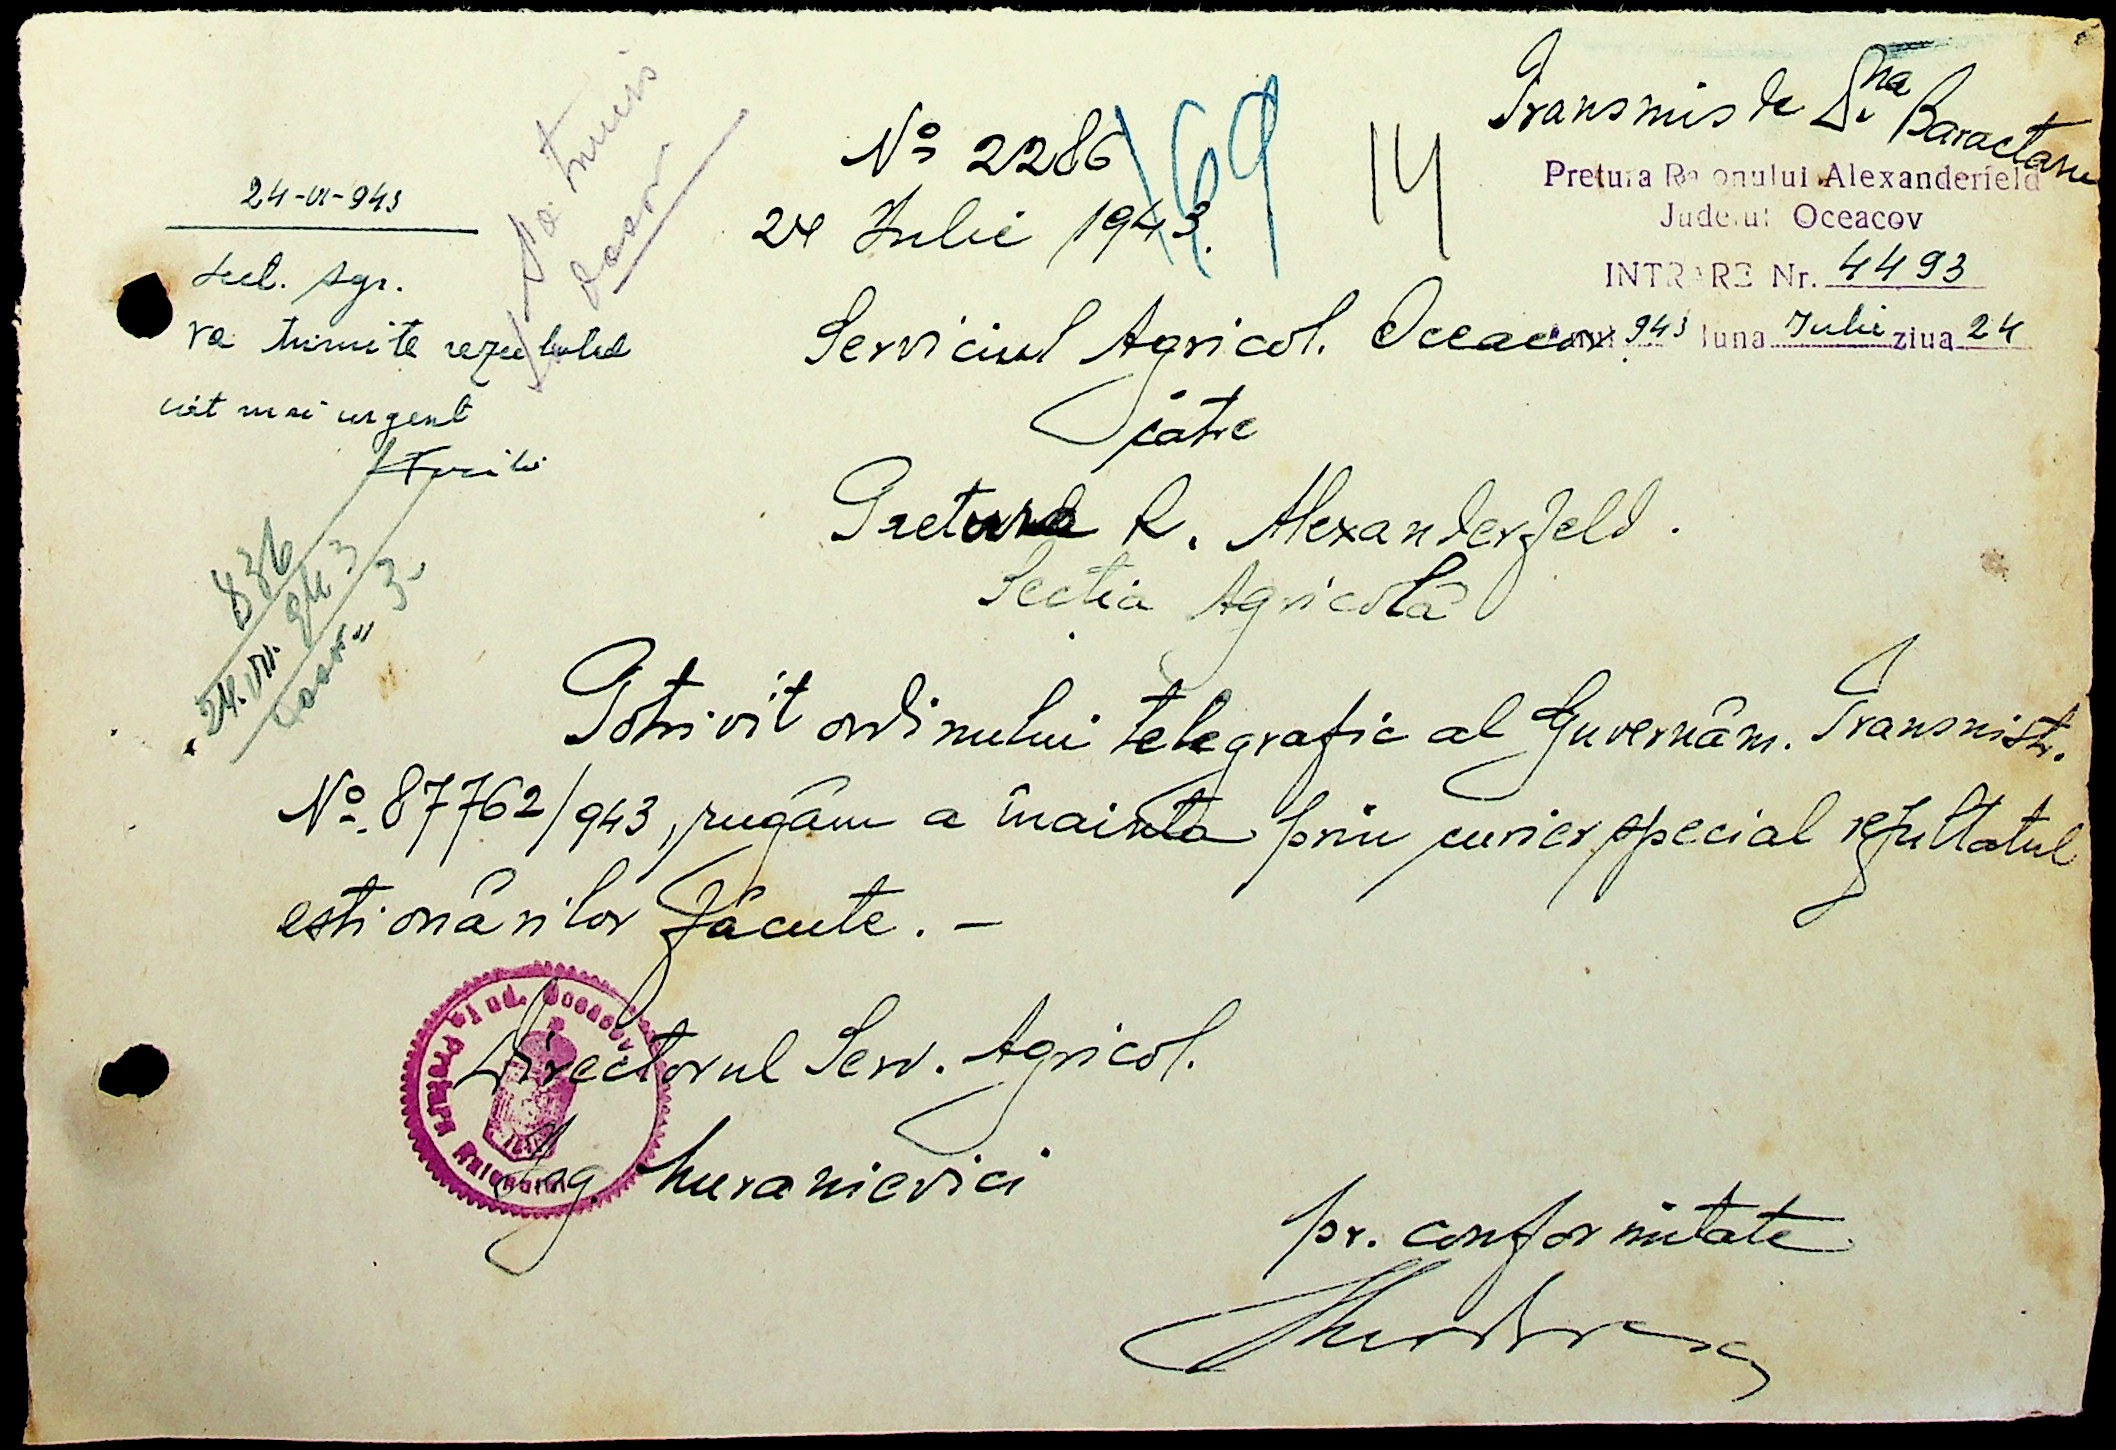 Transmis de Dna Baractaru
Pretura Raionului Alexanderfeld
Judetul Oceacov
INTRARE Nr. 4493
943 luna Iulie ziua 24
No 2286
169
14
24 Iulie 1943.
Serviciul Agricol. Oceacov
către
Pretura R. Alexanderfeld.
Secția Agricolă
24-VI-943
Sect. Agr.
va trimite rezultatul
cât mai urgent
S'a trimis
dosar
836
24.VII. 943
dosar 3
Potrivit ordinului telegrafic al Guvernăm. Transnistr.
No. 87762/943, rugăm a înainta prin curier special rezultatul
estimărilor făcute. –
Directorul Serv. Agricol.
Ing. Muranievici
Jud. Oceacov
Pretura Raionului
pr. conformitate